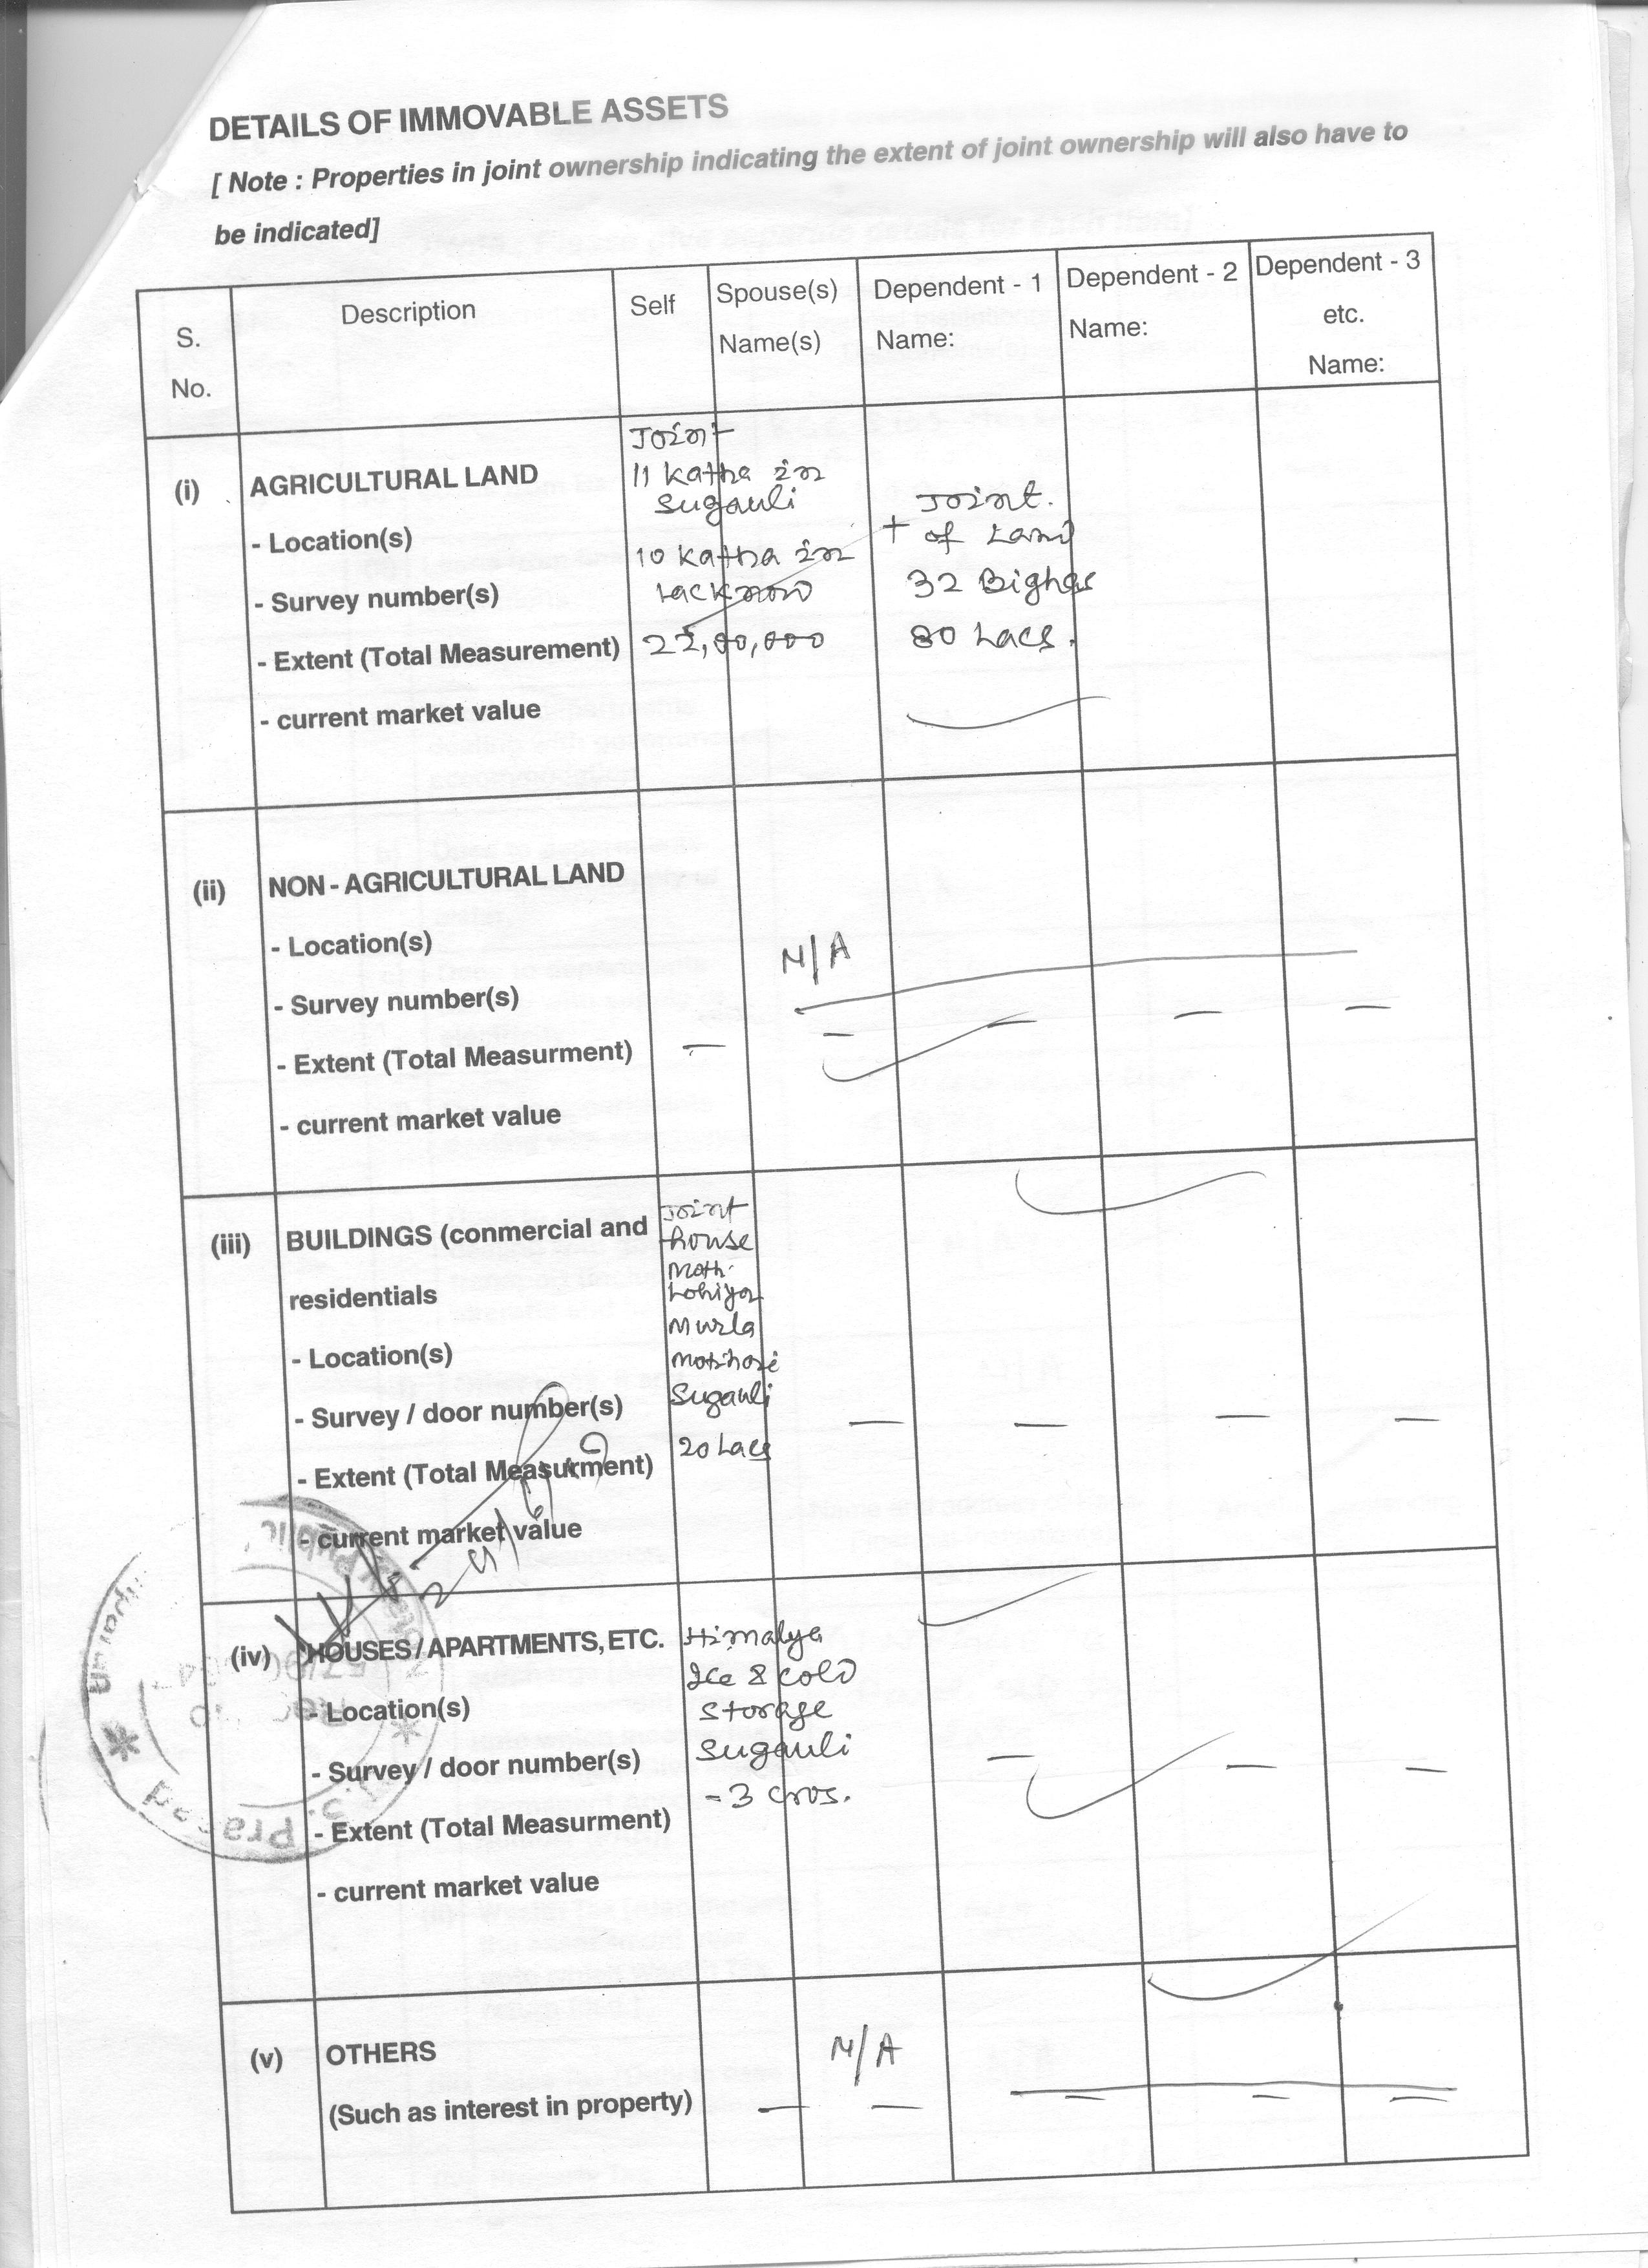 DETAILS OF IMMOVABLE ASSETS
[ Note : Properties in joint ownership indicating the extent of joint ownership will also have to
be indicated]
S. No.
Description
Self
Spouse(s) Name(s)
Dependent - 1 Name:
Dependent - 2 Name:
Dependent - 3 etc. Name:
(i)
AGRICULTURAL LAND
- Location(s)
- Survey number(s)
- Extent (Total Measurement)
- current market value
Joint
11 Katha in
Sugauli
10 Katha in
22,00,000
+ Joint.
of Land
32 Bighas
80 Lacs.
(ii)
NON - AGRICULTURAL LAND
- Location(s)
- Survey number(s)
- Extent (Total Measurment)
- current market value
N/A
— — — — —
(iii)
BUILDINGS (conmercial and
residentials
- Location(s)
- Survey / door number(s)
- Extent (Total Measurment)
- current market value
Joint
house
Lohiya
Murla
Sugauli
20 Lacs
— — — —
(iv)
HOUSES / APARTMENTS, ETC.
- Location(s)
- Survey / door number(s)
- Extent (Total Measurment)
- current market value
Himalya
Ice & cold
Storage
Sugauli
- 3 cros.
— — —
(v)
OTHERS
(Such as interest in property)
N/A
— — — — —
Prasad